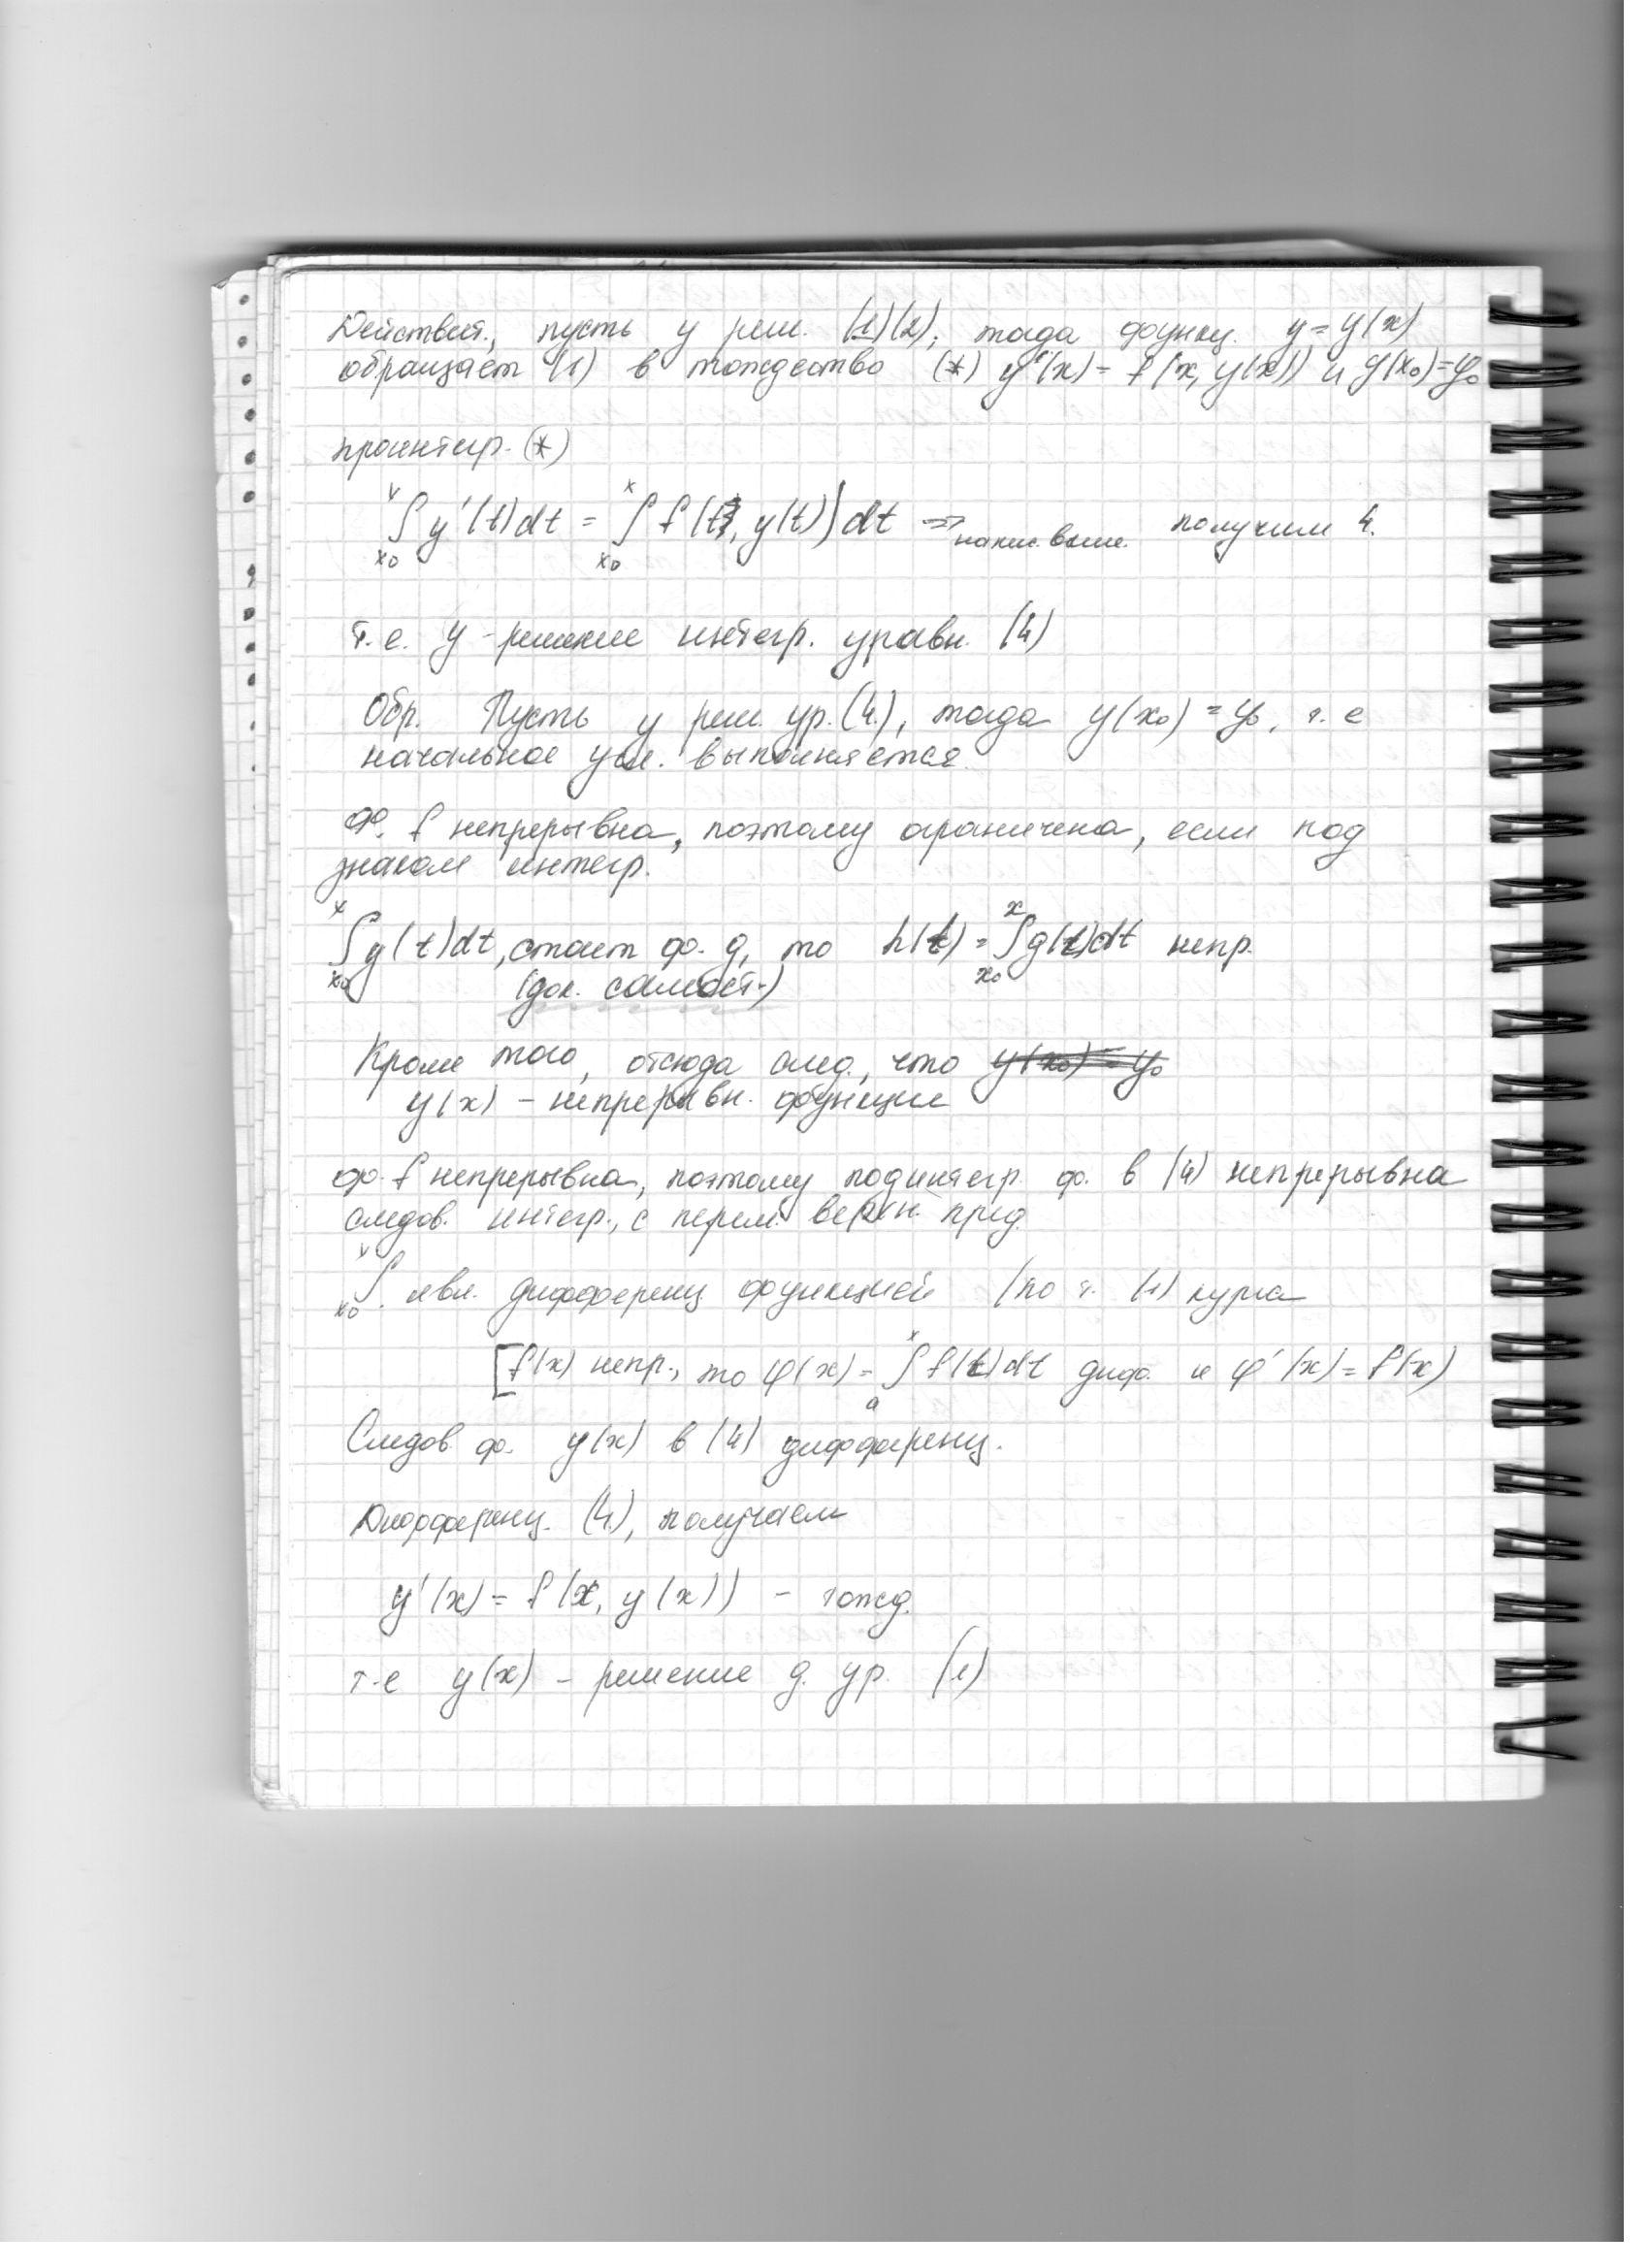 Действит., пусть y реш. (1)(2), тогда функц. y = y(x)
обращает (1) в тождество (*) y'(x) = f(x, y(x)) и y(x₀) = y₀
проинтегр. (*)
∫ₓ₀ˣ y'(t)dt = ∫ₓ₀ˣ f(t, y(t))dt ⇒ напис. выше. получим 4.
т.е. y - решение интегр. уравн. (4)
Обр. Пусть y реш. ур. (4), тогда y(x₀) = y₀, т. е
начальное усл. выполняется
Ф. f непрерывна, поэтому ограничена, если под
знаком интегр.
∫ₓ₀ˣ g(t)dt, стоит ф. g, то h(t) = ∫ₓ₀ˣ g(t)dt непр.
(док. самост.)
Кроме того, отсюда след., что y(x₀) = y₀
y(x) – непрерывн. функция
ф. f непрерывна, поэтому подинтегр. ф. в (4) непрерывна
следов. интегр., с перем. верхн. пред.
∫ₓ₀ˣ явл. дифференц функцией (по т. (1) курса
[f(x) непр., то φ(x) = ∫ₐˣ f(t)dt диф. и φ'(x) = f(x)
Следов ф. y(x) в (4) дифференц.
Дифференц. (4), получаем
y'(x) = f(x, y(x)) – тожд.
т.е y(x) – решение д. ур. (1)